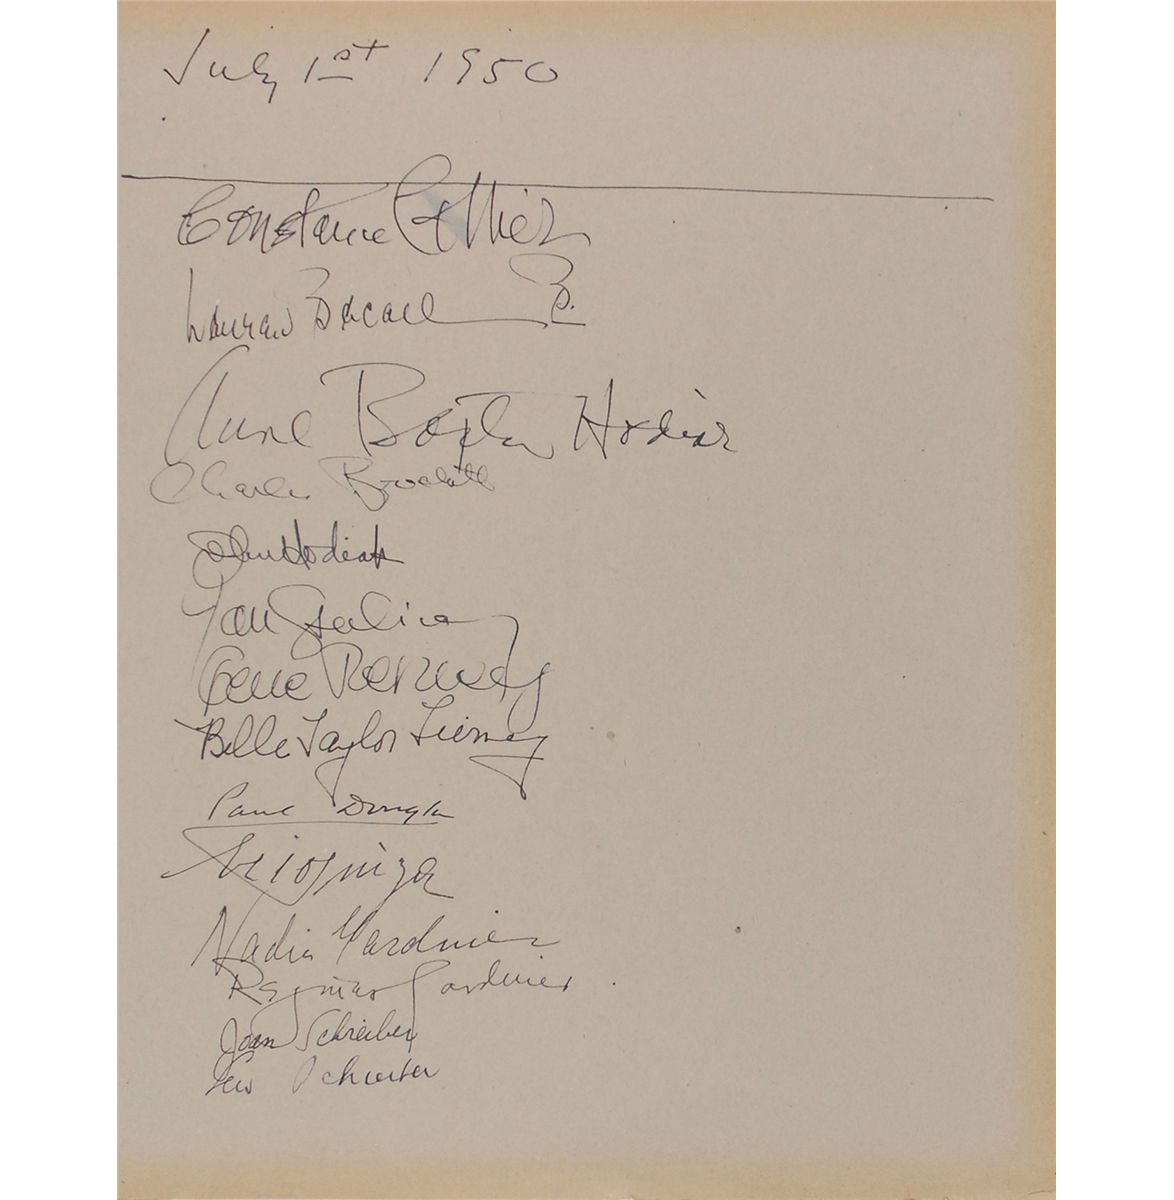 July 1st 1950
Constance Collier
Lauren Bacall B.
Anne Baxter Hodiak
Charles Brackett
John Hodiak
Jan
Gene
Belle Taylor Tierney
Paul Douglas
Nadia Gardiner
Reginald Gardiner
Joan Schreiber
Lew Schreiber